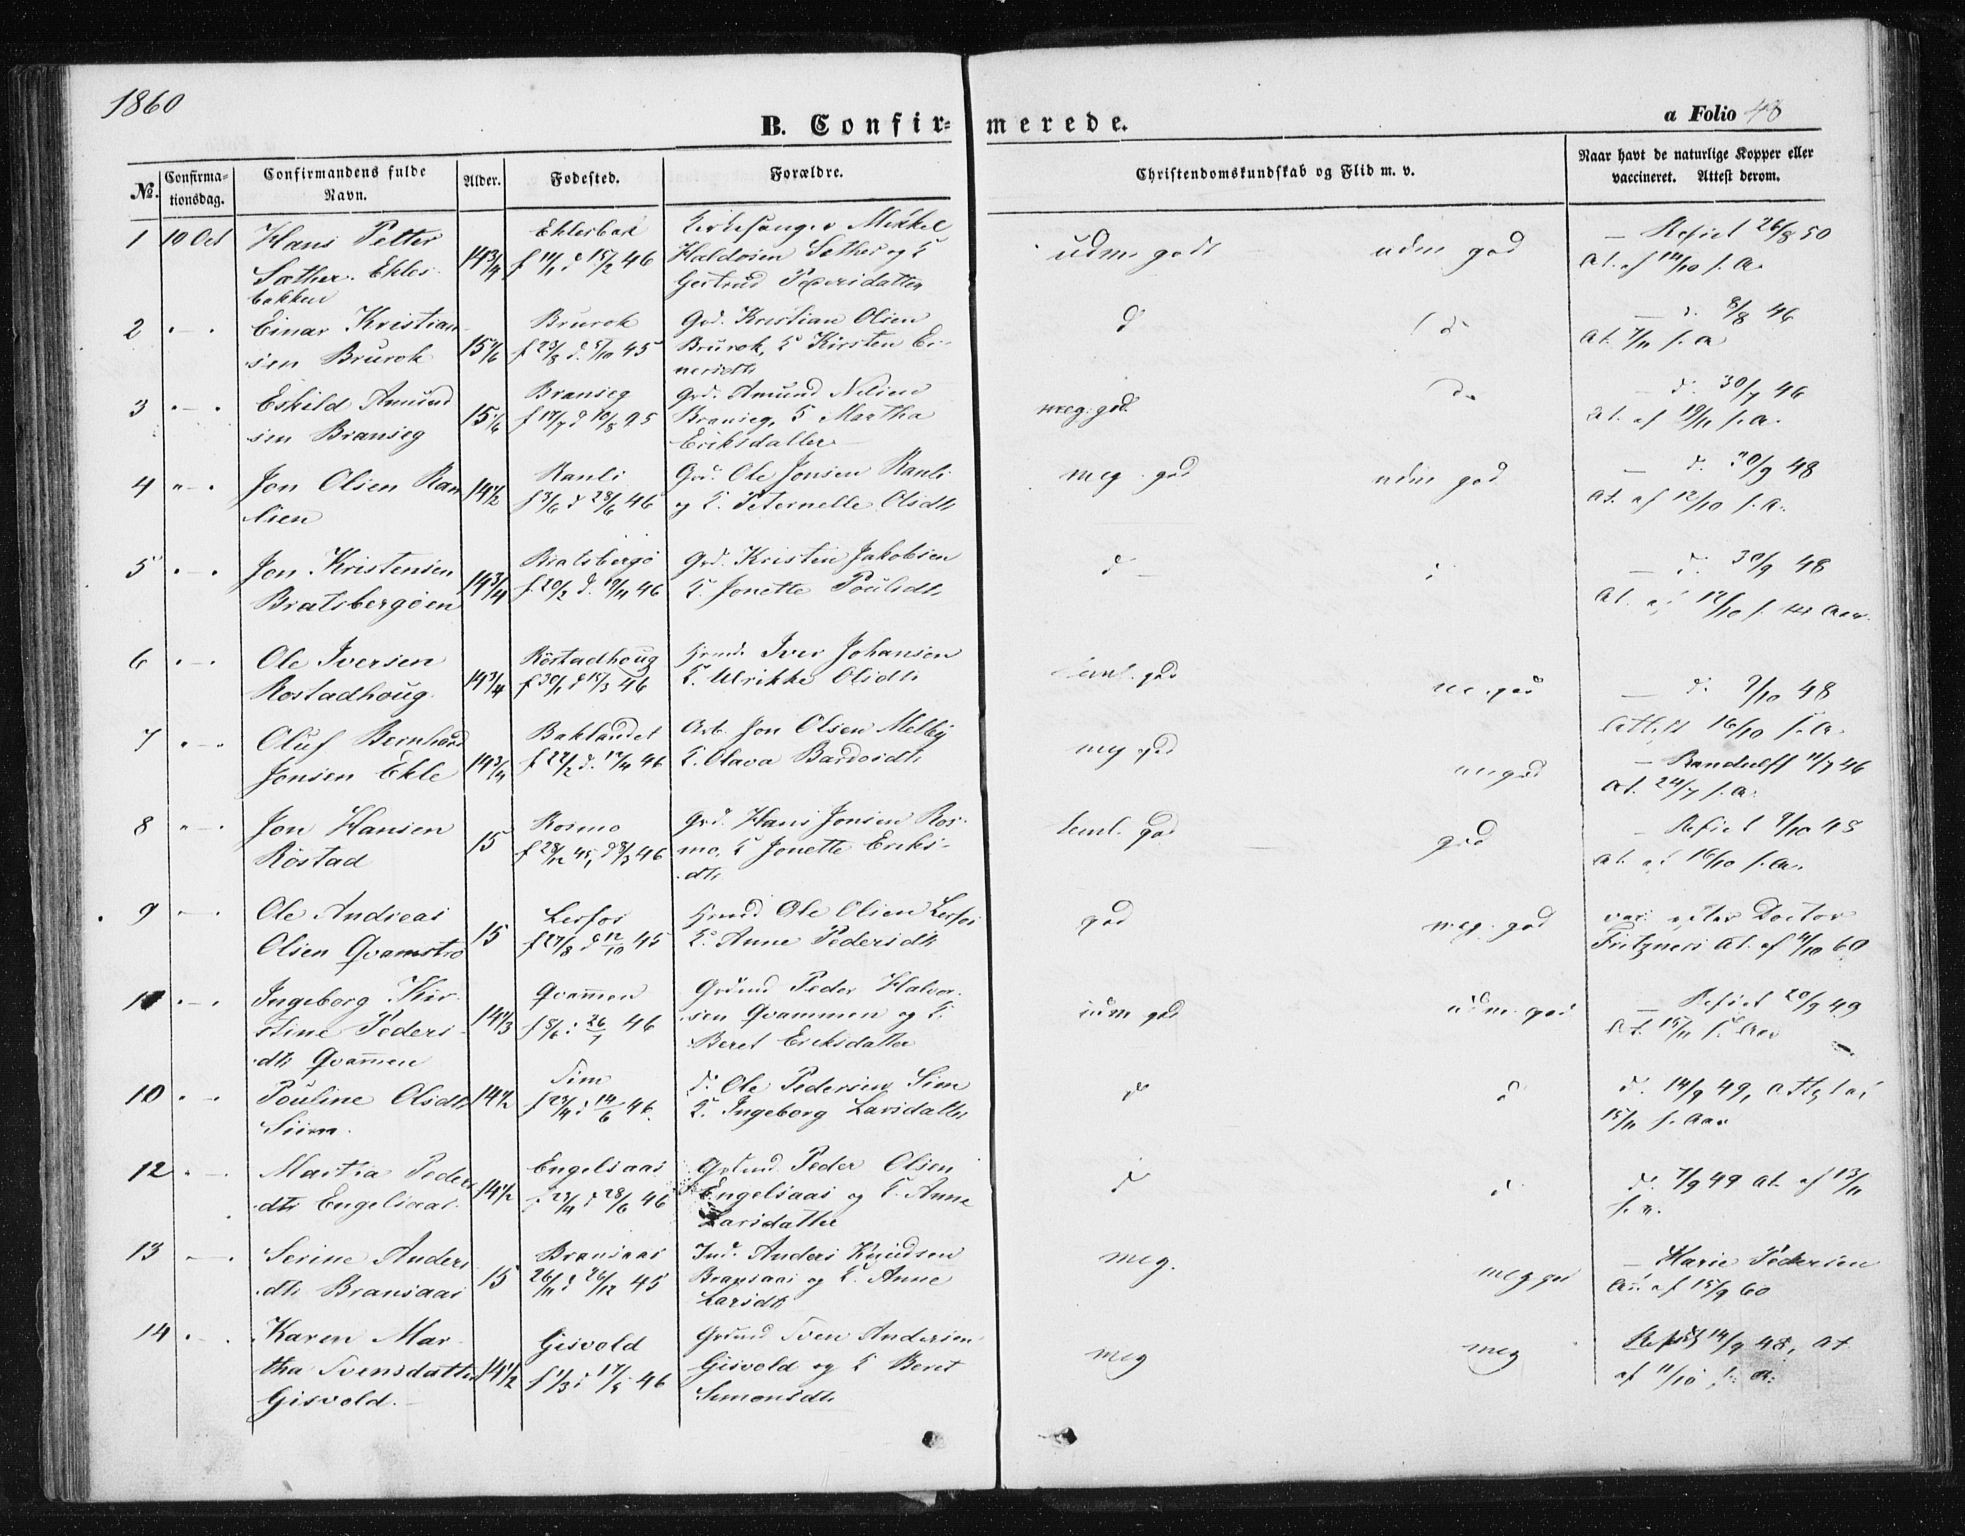 1860
B. Confir=
merede.
a Folio 48
No.
Confirma-
tionsdag.
Confirmandens fulde
Navn.
Alder.
Fødested.
Forældre.
Christendomskundskab og Flid m. v.
Naar havt de naturlige Kopper eller
vaccineret. Attest derom.
1 10 Oct Hans Petter
Sæther. Ekles
bakken
14 3/4
f 14/1 d 15/2 46
Kirkesanger Mikkel
Haldosen Sæther og
Gertrud
udm godt
udm god
Refiel 26/8 50
At. af 14/10 s. A.
2 Einar Kristian
sen Brurok
15 1/6
Brurok
f 23/8 d. 5/10 45
Grd. Kristian Olsen
Brurok, Kirsten Ei-
nersdtr
d
d
8/8 46
At. 7/11 s. A
3 Eskild Amund
sen Branseg
15 1/6
Branseg
f 17/7 d 10/8 45
Grd. Amund Nilsen
Branseg, Martha
Eriksdatter
meg. god.
do
d. 30/7 46
At. af 19/11 s. A.
4 Jon Olsen Ran
lien
14 1/2
Ranli
f 3/6 d 28/6 46
Grd. Ole Jonsen Ranli
og Peternelle Olsdtr
meg. god
udm god
d. 30/9 48
At. af 12/10 s. A.
5 Jon Kristensen
Bratsbergøen
14 3/4
Bratsbergø
f 20/2 d. 19/4 46
Grd. Kristen Jakobsen
Jonette Poulsdtr
d
d. 30/9 48
At. af 12/10 s.
6 Ole Iversen
Rostadhoug
14 3/4
Röstadhoug
f 30/1 d 15/3 46
Iver Johansen
Ulrikke Olsdtr
teml. god
d. 9/10 48
Attest 16/10 s. A.
7 Oluf Bernhard
Jonsen Ekle
14 3/4
Baklandet
f 22/2 d. 12/4 46
Arb. Jon Olsen Melby
Olava Bardosdtr
meg god
Randulff 11/7 46
At. 24/7 s. A.
8 Jon Hansen
Röstad
15
Rosmo
f 28/12 45, d 8/3 46
Grd. Hans Jonsen Ros-
mo, Jonette Eriks-
dtr
teml. god
god
Refiel 9/10 48
At. af 16/10 s. A.
9 Ole Andreas
Olsen Qvamstrø
15
Lerfos
f 27/8 d 12/10 45
Ole Olsen Lerfos
Anne Pedersdtr
god
meg. god
vac. efter Doctor
Fritzners At. af 4/10 60
Ingeborg Kir-
stine Peders-
dtr Qvammen
14 1/3
Qvammen
26/7 46
Grund Peder Halvor-
sen Qvammen og
Beret Eriksdatter
udm god
udm. god
Refiel 20/9 49
At. 15/11 s. Aar
10 Pouline Olsdtr
Siim.
14 1/2
f 23/4 d 14/6 46.
d. Ole Pedersen Sim
Ingeborg Larsdatter
d
d
d. 14/9 49,
15/11 s. Aar
12 Martha Peders
dtr Engelsaas.
14 1/2
Engelsaas
23/4 d 28/6 46
Grund. Peder Olsen
Engelsaas og Anne
Larsdatter
d
d
d. 7/9 49 At. af 13/11
s. A.
13 Serine Anders
dtr Bransaas
15
Bransaas
26/11 d 26/12 45
Ind. Anders Knudsen
Bransaas og Anne
Larsdtr
meg.
meg god
Marie Pedersen
At. af 15/9 60
14 Karen Mar-
tha Svensdatter
Gisvold.
14 1/2
Gisvold
f 1/3 d 17/5 46
Grund Sven Andersen
Gisvold og Beret
Simonsdtr
meg
meg
14/9 48, At
af 11/10 s. A.